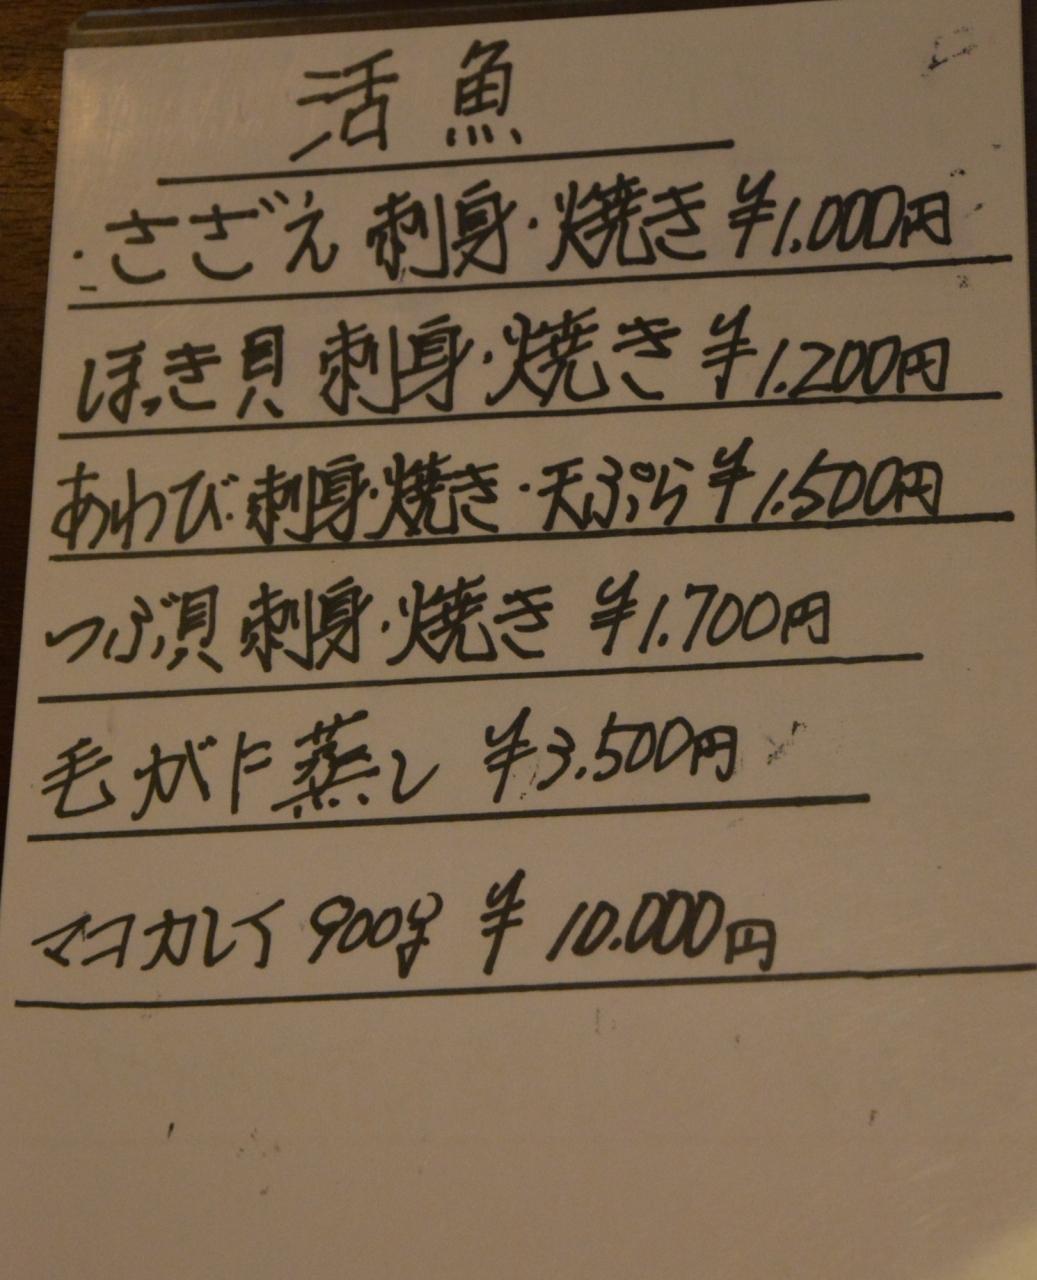 活魚
・さざえ 刺身・焼き ¥1.000円
ほっき貝 刺身・焼き ¥1.200円
あわび 刺身・焼き・天ぷら ¥1.500円
つぶ貝 刺身・焼き ¥1.700円
毛ガニ蒸し ¥3.500円
マコカレイ 900g ¥10.000円